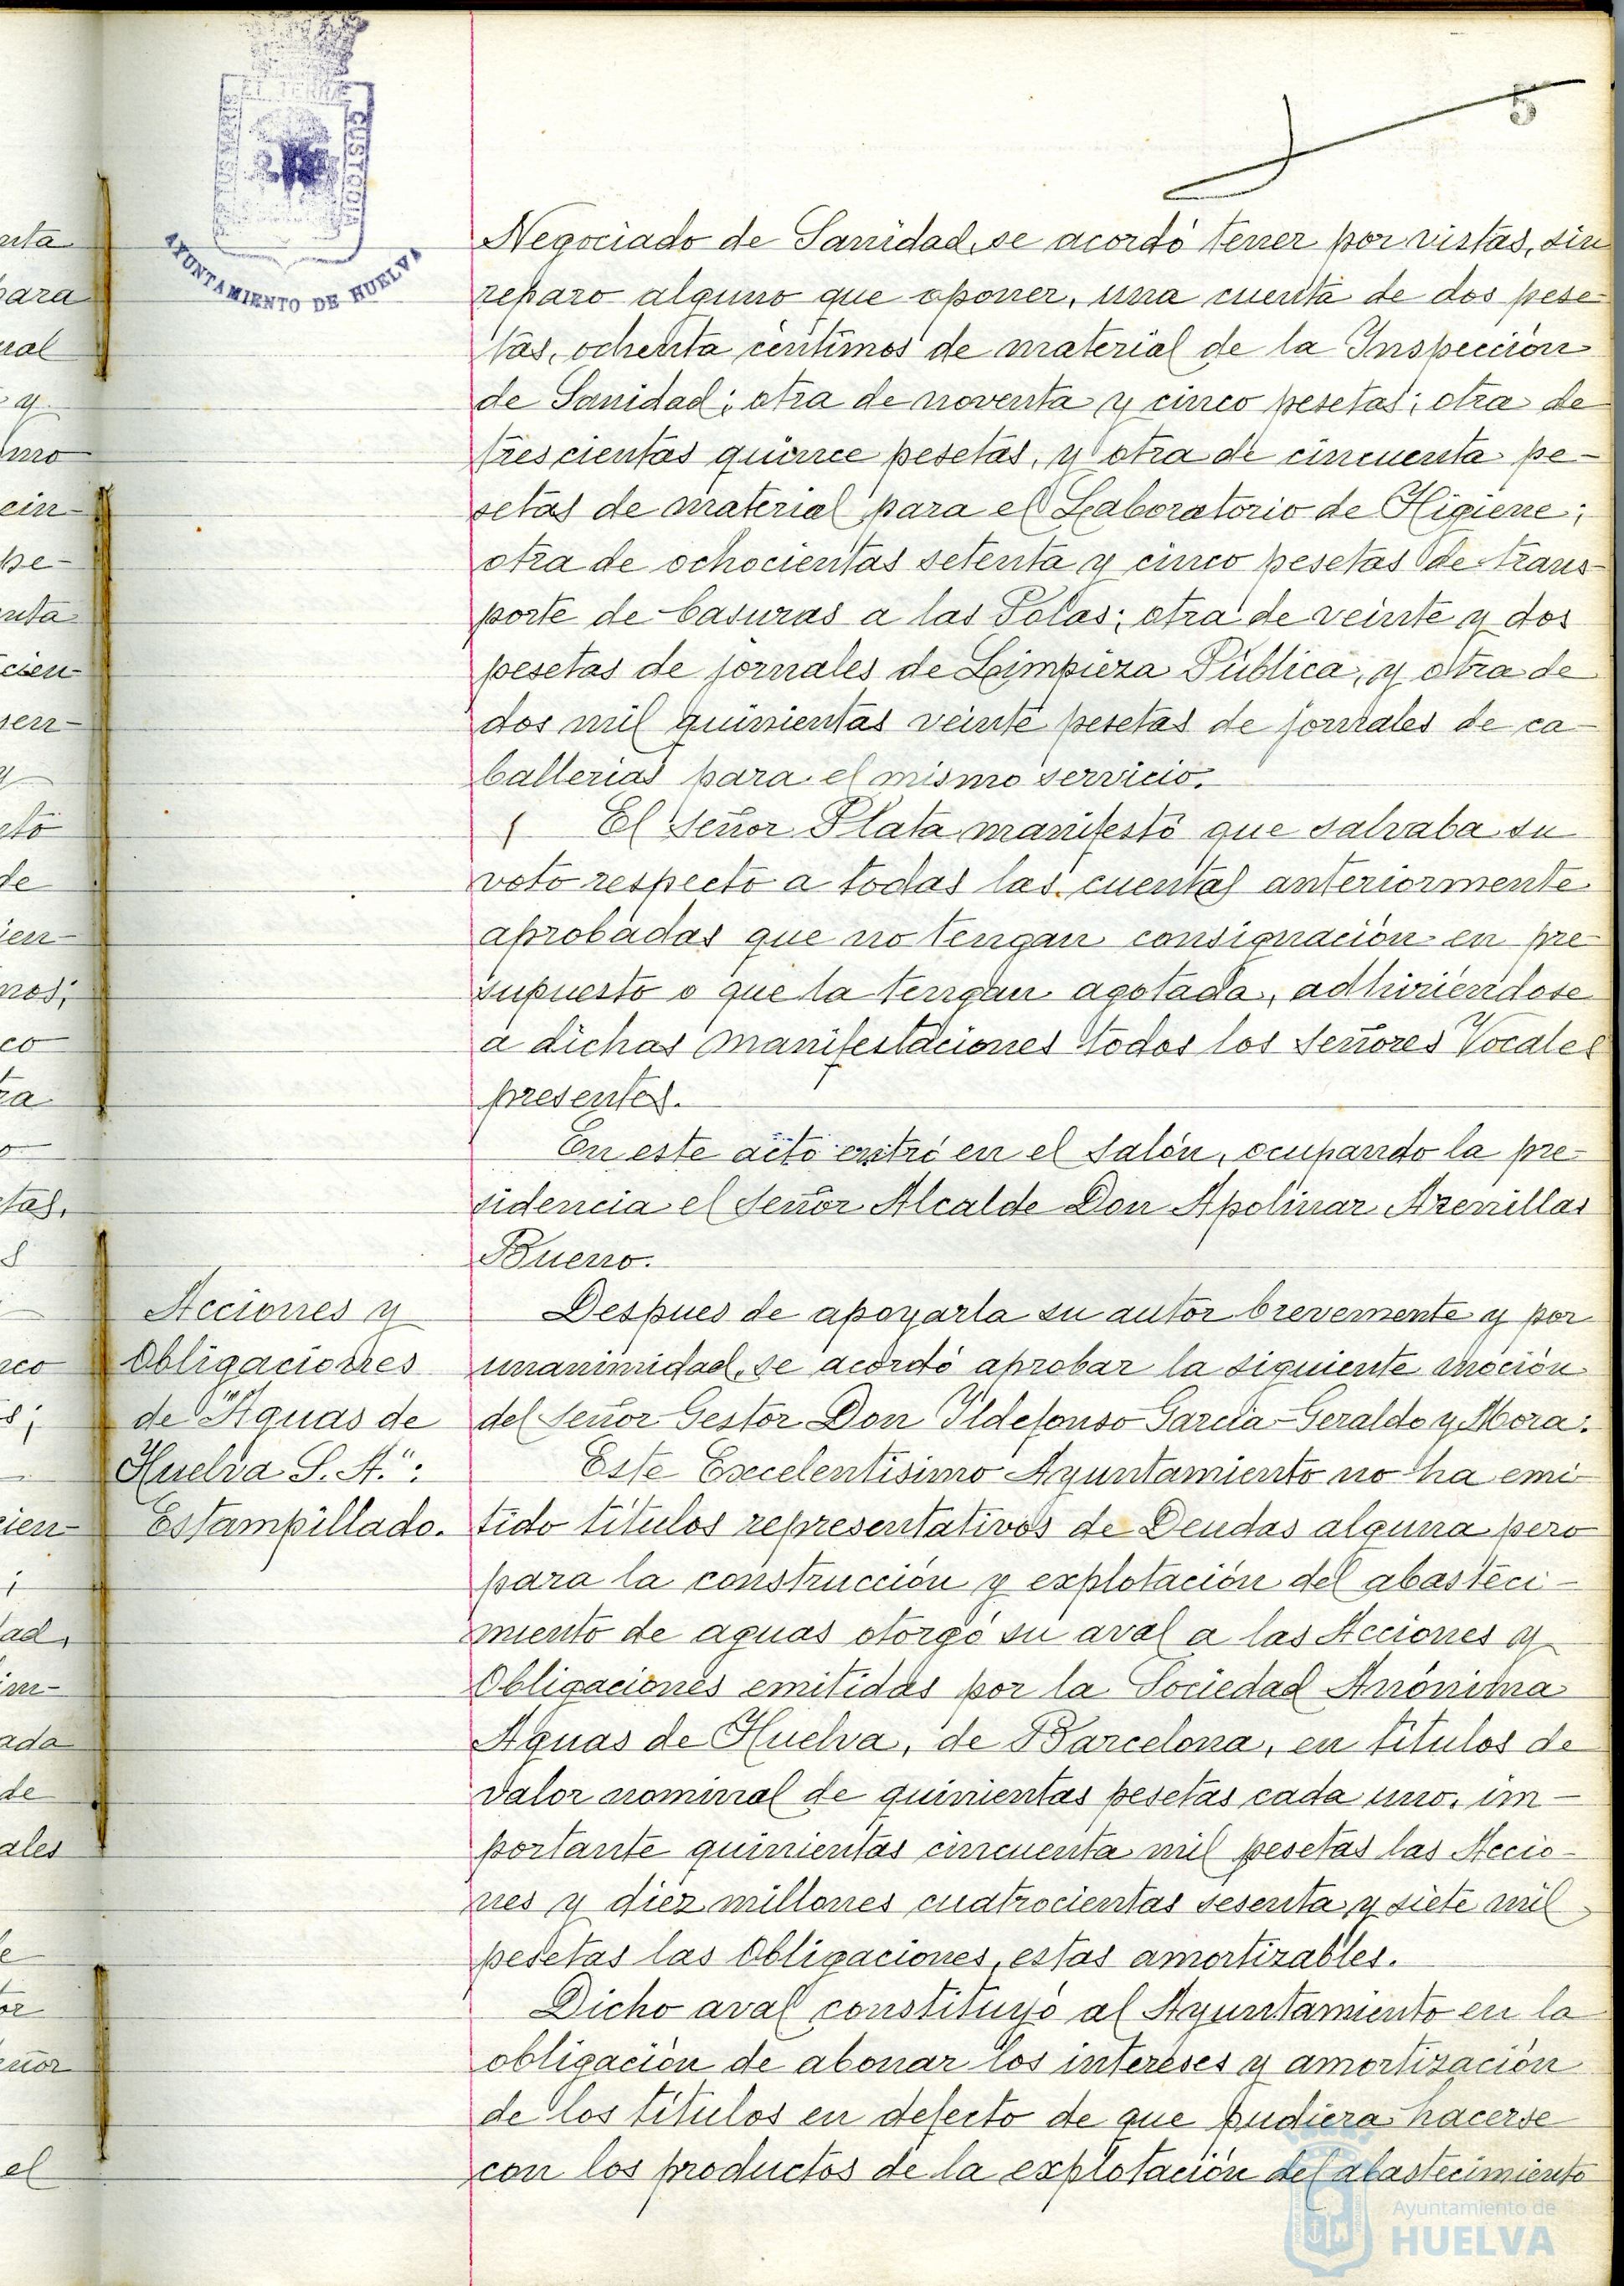 5
PORTUS MARIS ET TERRAE CUSTODIA
AYUNTAMIENTO DE HUELVA
Negociado de Sanidad, se acordó tener por vistas, sin
reparo alguno que oponer, una cuenta de dos pese-
tas, ochenta céntimos de material de la Inspección
de Sanidad; otra de noventa y cinco pesetas; otra de
trescientas quince pesetas, y otra de cincuenta pe-
setas de material para el Laboratorio de Higiene;
otra de ochocientas setenta y cinco pesetas de trans-
porte de basuras a las Polas; otra de veinte y dos
pesetas de jornales de Limpieza Pública, y otra de
dos mil quinientas veinte pesetas de jornales de ca-
ballerias para el mismo servicio.
El Señor Plata manifestó que salvaba su
voto respecto a todas las cuentas anteriormente
aprobadas que no tengan consignación en pre-
supuesto o que la tengan agotada, adhiriéndose
a dichas manifestaciones todos los Señores Vocales
presentes.
En este acto entró en el salón, ocupando la pre-
sidencia el Señor Alcalde Don Apolinar Arenillas
Bueno.
Acciones y
Obligaciones
de "Aguas de
Huelva S. A.":
Estampillado.
Despues de apoyarla su autor brevemente y por
unanimidad, se acordó aprobar la siguiente moción
del Señor Gestor Don Ildefonso Garcia-Geraldo y Mora:
Este Excelentísimo Ayuntamiento no ha emi-
tido títulos representativos de Deudas alguna pero
para la construcción y explotación del abasteci-
miento de aguas otorgó su aval a las Acciones y
Obligaciones emitidas por la Sociedad Anónima
Aguas de Huelva, de Barcelona, en títulos de
valor nominal de quinientas pesetas cada uno, im-
portante quinientas cincuenta mil pesetas las Accio-
nes y diez millones cuatrocientas sesenta y siete mil
pesetas las Obligaciones, estas amortizables.
Dicho aval constituyó al Ayuntamiento en la
obligación de abonar los intereses y amortización
de los títulos en defecto de que pudiera hacerse
con los productos de la explotación del abastecimiento
Ayuntamiento de
HUELVA